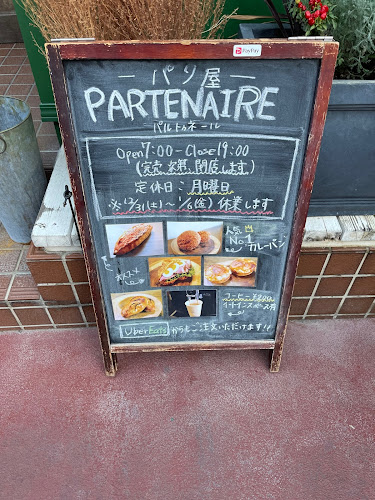 PayPay
パン屋
PARTENAIRE
パルトゥネール
Open 7:00-Close 19:00
(完売次第、閉店します)
定休日:月曜日
※12/31(土)~1/6(金)休業します
人気
No1
カレーパン
オススメ
イートインスペース有
Uber Eatsからもご注文いただけます!!